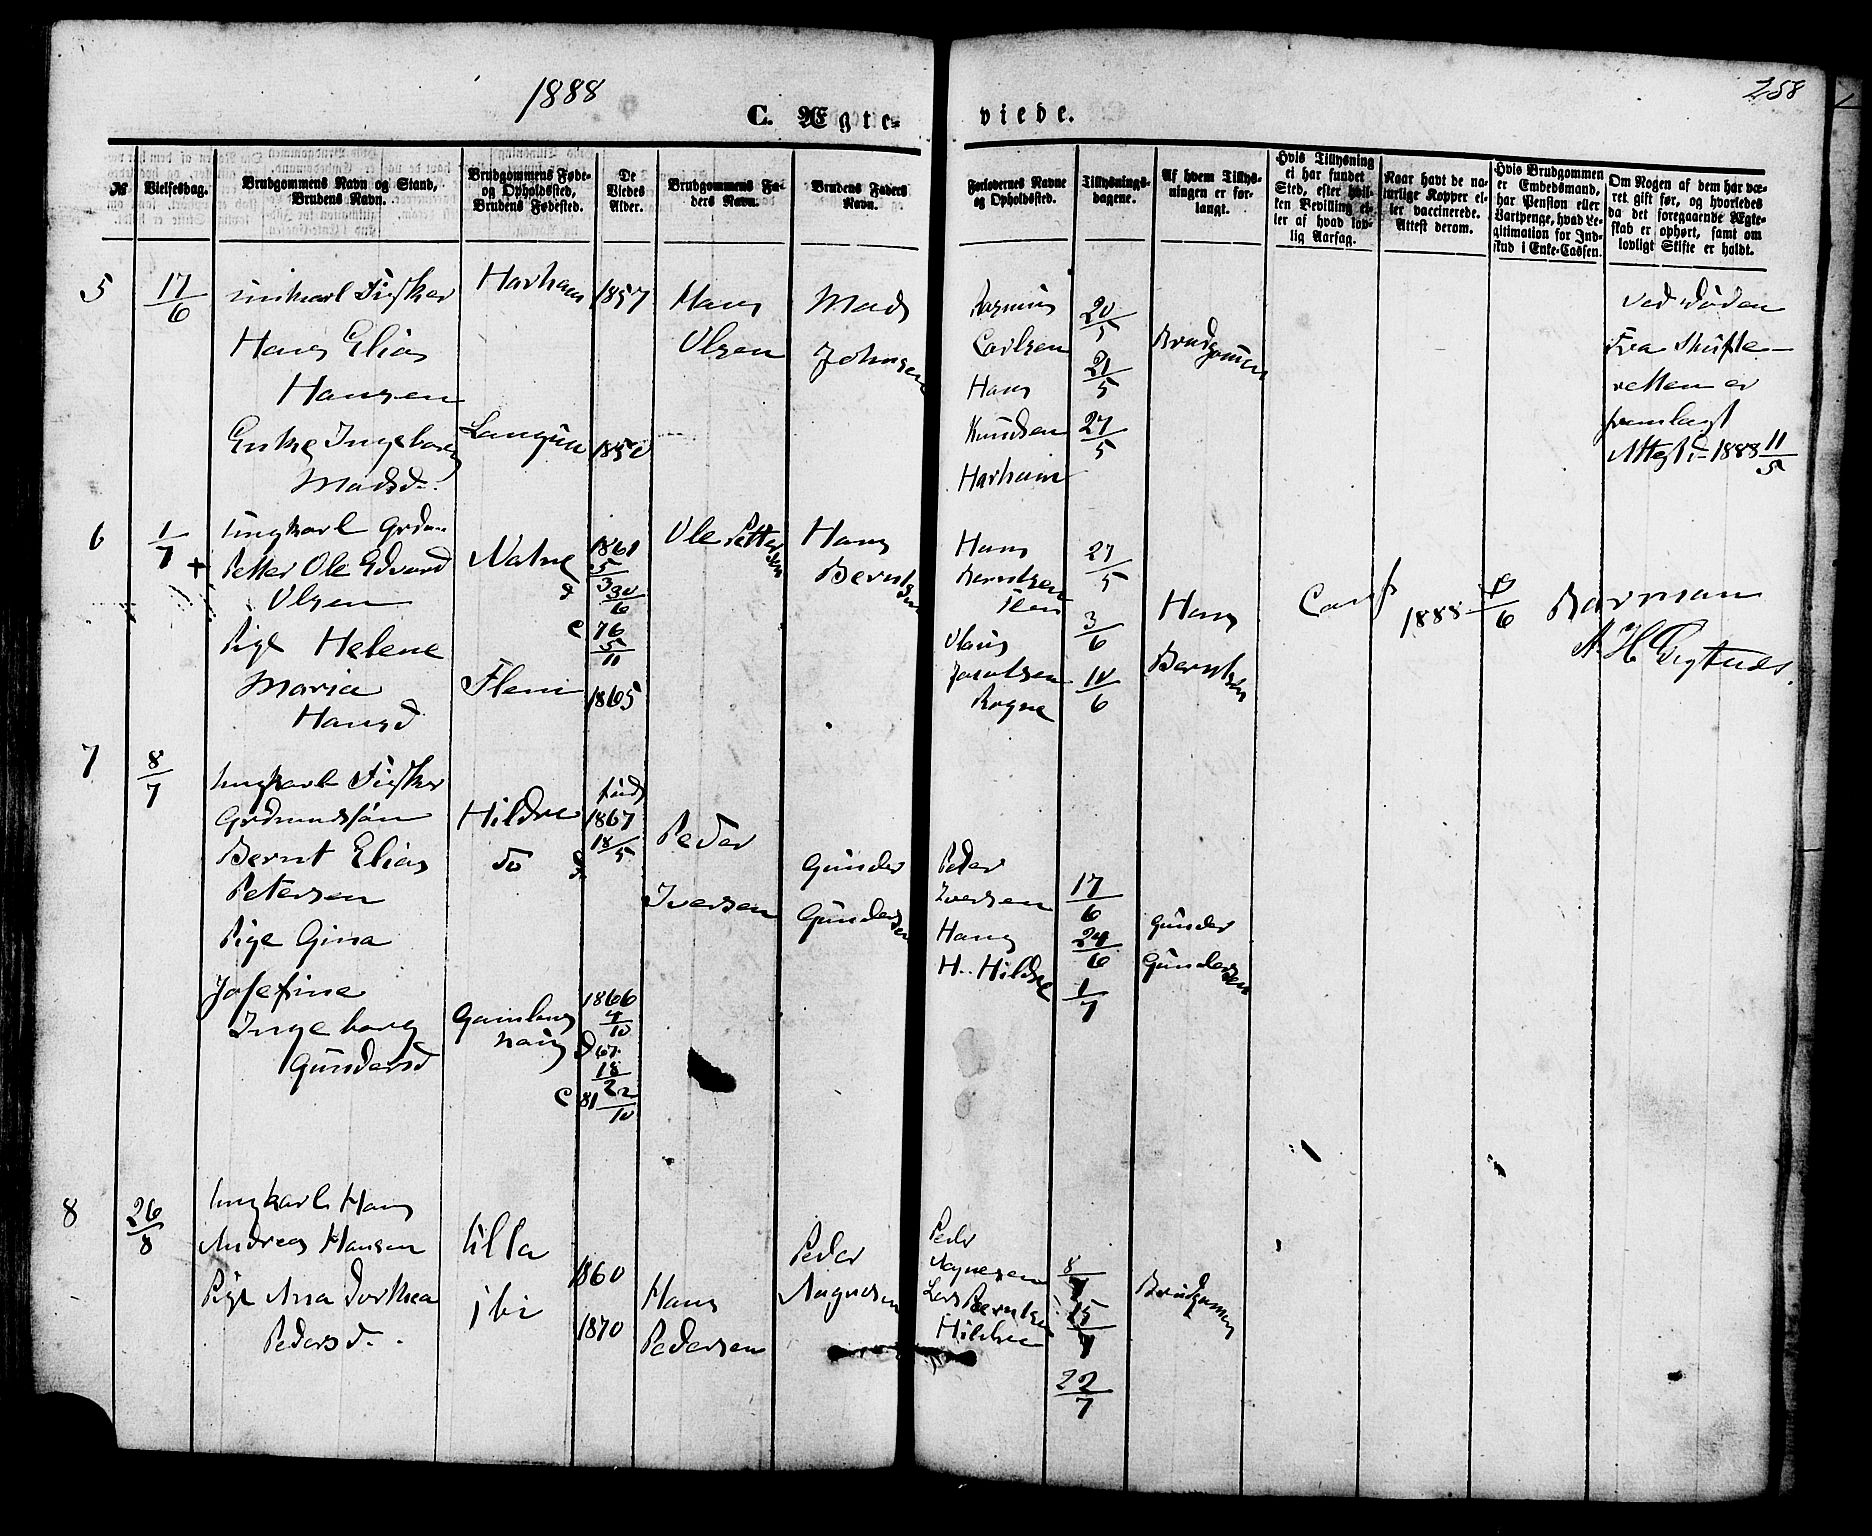 1888
258
C. Ægteviede.
№
Vielsesdag.
Brudgommens Navn og Stand,
Brudens Navn.
Brudgommens Føde-
og Opholdssted,
Brudens Fødested.
De
Viedes
Alder.
Brudgommens Fa-
ders Navn.
Brudens Faders
Navn.
Forlovernes Navne
og Opholdssted.
Tillysnings-
dagene.
Af hvem Tillys-
ningen er for-
langt.
Hvis Tillysning
ei har fundet
Sted, efter hvil-
ken Bevilling el-
ler af hvad lov-
lig Aarsag.
Naar havt de na-
turlige Kopper el-
ler vaccinerede.
Attest derom.
Hvis Brudgommen
er Embedsmand,
har Pension eller
Vartpenge, hvad Le-
gitimation for Ind-
skud i Enke-Cassen.
Om Nogen af dem har væ-
ret gift før, og hvorledes
da det foregaaende Ægte-
skab er ophørt, samt om
lovligt Skifte er holdt.
5 17/6 Ungkarl Fisker Harham 1857 Hans Mads Rasmus 20/5
Hans Elias Olsen Johnsen Carlsen 21/5 Brudgommen
Hansen Hans
Enke Ingeborg 1850 Knudsen 27/5
Madsd. Harham
Ved Døden
Fra Skifte-
retten er
fremlagt
Attest 1888 11/5
6 1/7 Ungkarl Grdm
+ Petter Ole Edvard 1861 Ole Pettersen Hans Hans 27/5
Olsen 30/6 Berntsen Berntsen
Pige Helene c 76 5/11 3/6 Hans
Maria Flem 1865 Jacobsen 10/6 Berntsen
Hansd Rogne
1888 6
7 8/7 Ungkarl Fisker født
Grdmandssøn Hildre 1867 18/5 Peder
Bernt Elias do Gunder Peder
Petersen Iversen Gundersen Iversen 17/6
Pige Gina Hans 24/6 Gunder
Josefine 1866 4/10 H. Hildre 1/7 Gundersen
Ingeborg d 67 18/2
Gundersd c 81 22/10
8 26/8 Ungkarl Hans
Andreas Hansen Ulla 1860 Peder Peder 8/7
Pige Ana Dorthea ibi 1870 Hans Magnesen Magnesen 15/7 Brudgommen
Pedersd. Pedersen Lars Berntsen
Hildre
22/7